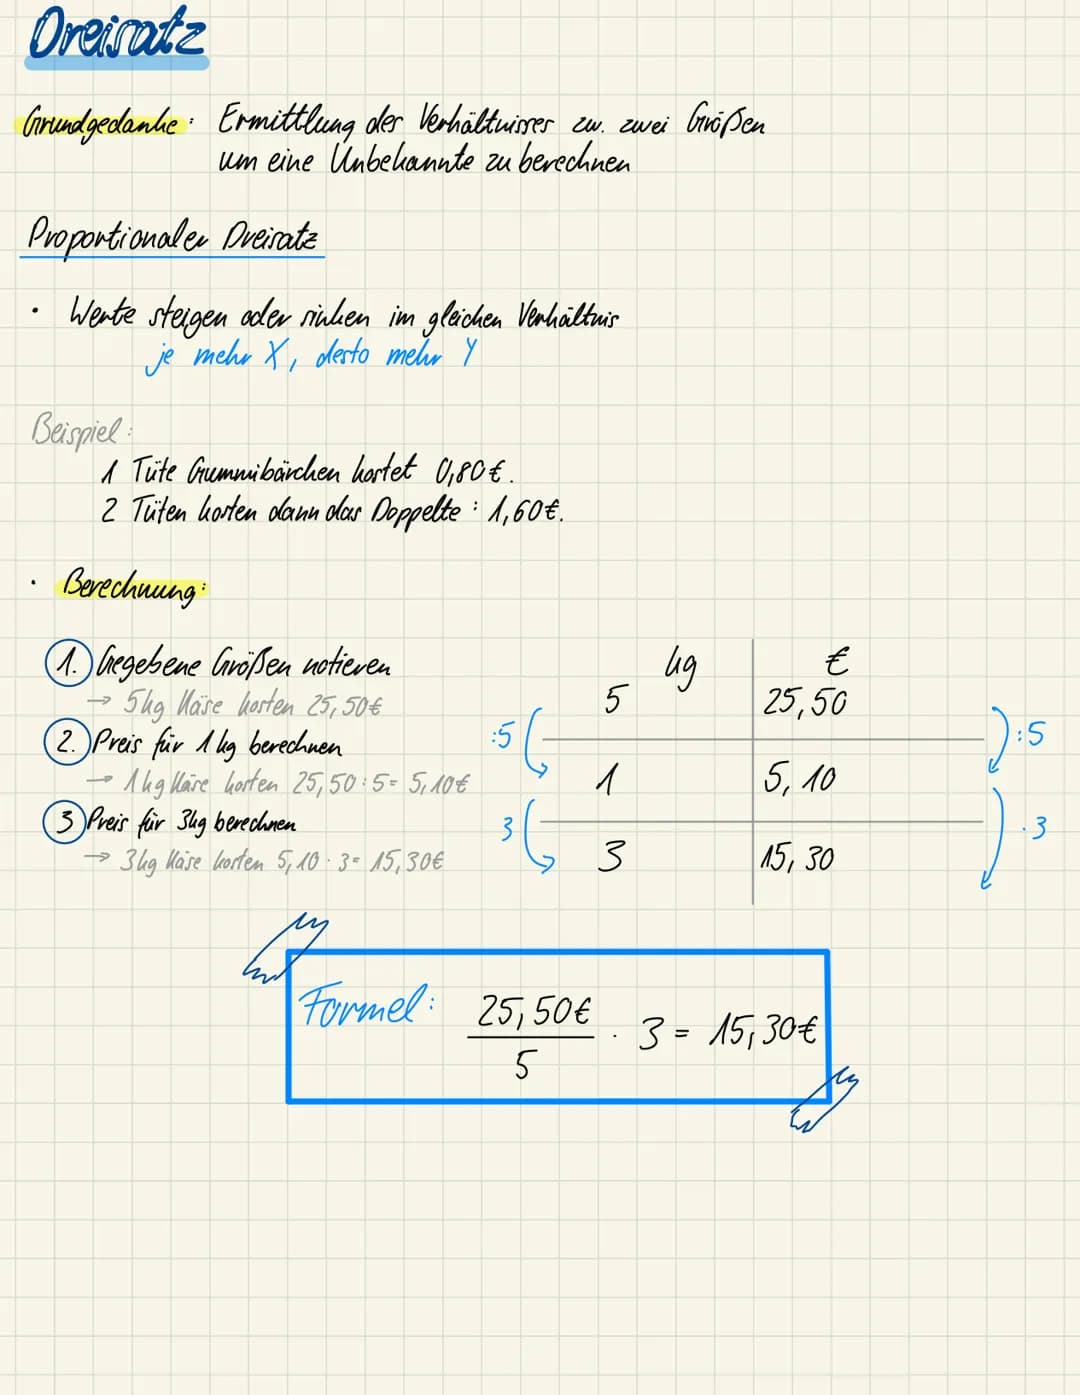 Dreisatz
Grundgedanke: Ermittlung des Verhältnisses zw. zwei Größen
um eine Unbekannte zu berechnen
Proportionaler Dreisatz
· Werte steigen oder sinken im gleichen Verhältnis
je mehr X, desto mehr Y
Beispiel:
1 Tüte Gummibärchen kostet 0,80€.
2 Tüten kosten dann das Doppelte: 1,60€.
· Berechnung:
1. Gegebene Größen notieren
→ 5kg Käse kosten 25,50€
2. Preis für 1 kg berechnen
→ 1kg Käse kosten 25,50:5= 5,10€
3 Preis für 3kg berechnen
→ 3kg Käse kosten 5,10 · 3= 15,30€
kg €
5 25,50
:5 :5
1 5,10
3 ·3
3 15,30
Formel: 25,50€/5 · 3 = 15,30€